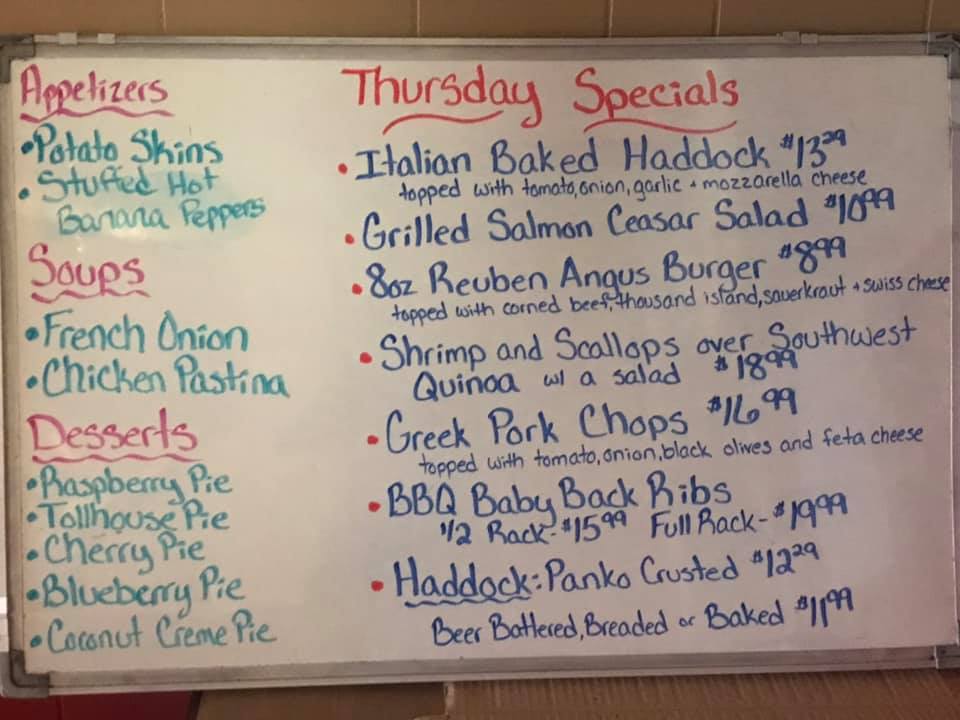 Appetizers
•Potato Skins
•Stuffed Hot
Banana Peppers
Soups
•French Onion
•Chicken Pastina
Desserts
•Raspberry Pie
•Tollhouse Pie
•Cherry Pie
•Blueberry Pie
•Coconut Creme Pie
Thursday Specials
•Italian Baked Haddock $13.29
topped with tomato, onion, garlic + mozzarella cheese
•Grilled Salmon Ceasar Salad $10.99
•8oz Reuben Angus Burger $8.99
topped with corned beef, thousand island, sauerkraut + swiss cheese
•Shrimp and Scallops over Southwest
Quinoa w/ a salad $18.99
•Greek Pork Chops $16.99
topped with tomato, onion, black olives and feta cheese
•BBQ Baby Back Ribs
1/2 Rack-$15.99 Full Rack-$19.99
•Haddock: Panko Crusted $12.29
Beer Battered, Breaded or Baked $11.99